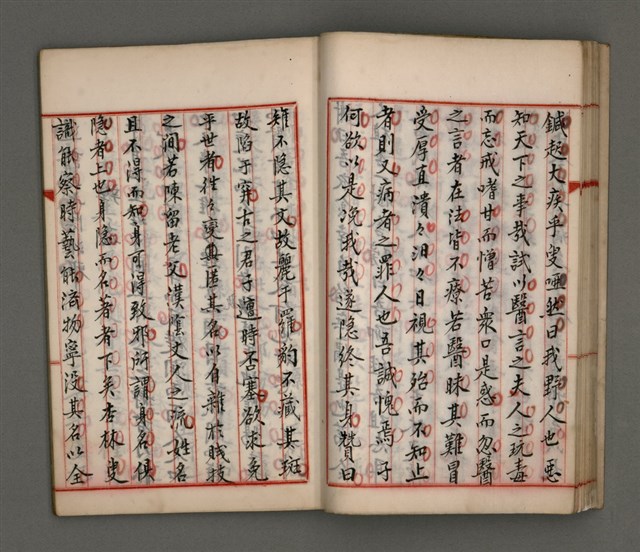 鍼起大疾乎叟啞然曰我野人也惡
知天下之事哉試以醫言之夫人之玩毒
而忘戒嗜甘而憎苦衆口是惑而忽醫
之言者在法皆不療若醫昧其難冒
受厚直潰々汨々日視其殆而不知止
者則又病者之罪人也吾誠愧焉子
何欲以是浼我哉遂隐終其身贊曰
雉不隐其文故麗于羅豹不藏其斑
故陷于穽古之君子遭時否塞欲求免
乎世者徃々更典匿其名以自雜於賤技
之間若陳留老父漢蔭丈人之流姓名
且不得而知身可得致耶所謂身名俱
隐者上也身隐而名著者下矣杏林叟
識能察時藝能濟物寧没其名以全